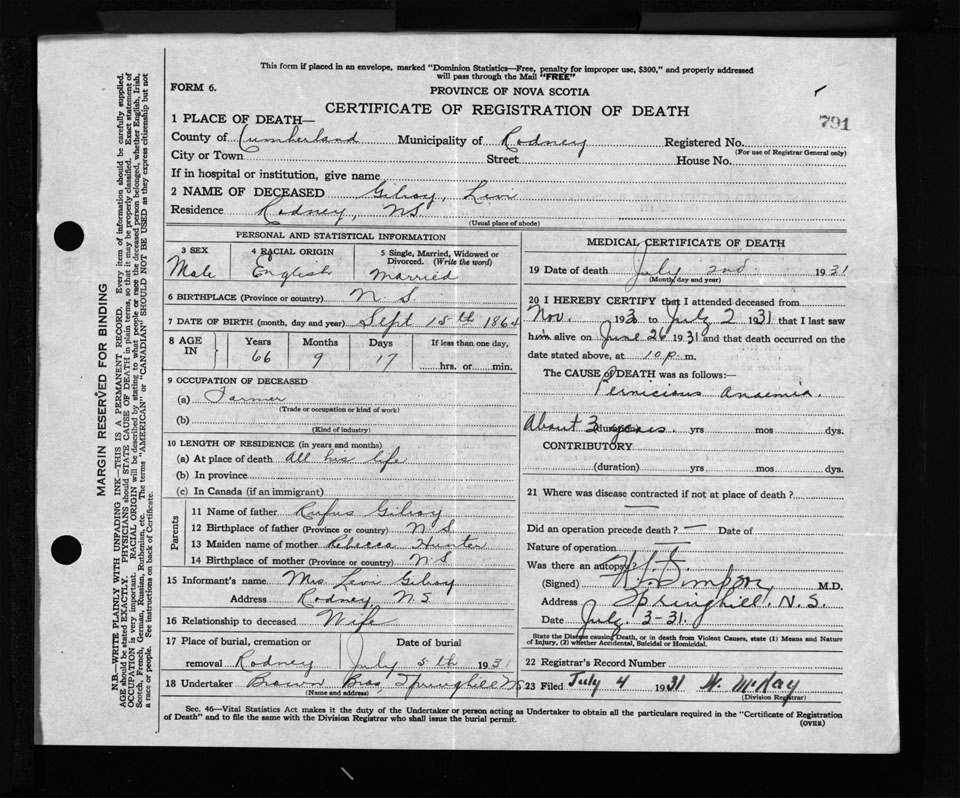 This form if placed in an envelope, marked "Dominion Statistics—Free, penalty for improper use, $300," and properly addressed
will pass through the Mail "FREE"
FORM 6.
PROVINCE OF NOVA SCOTIA
791
CERTIFICATE OF REGISTRATION OF DEATH
1 PLACE OF DEATH—
County of Cumberland Municipality of Rodney Registered No.
(For use of Registrar General only)
City or Town Street House No.
If in hospital or institution, give name
2 NAME OF DECEASED Gilroy, Levi
Residence Rodney, N.S.
(Usual place of abode)
PERSONAL AND STATISTICAL INFORMATION
3 SEX 4 RACIAL ORIGIN 5 Single, Married, Widowed or
Divorced. (Write the word)
Male English Married
6 BIRTHPLACE (Province or country) N.S.
7 DATE OF BIRTH (month, day and year) Sept 15th 1864
8 AGE IN Years Months Days If less than one day,
66 9 17 hrs. or min.
9 OCCUPATION OF DECEASED
(a) Farmer
(Trade or occupation or kind of work)
(b)
(Kind of industry)
10 LENGTH OF RESIDENCE (in years and months)
(a) At place of death all his life
(b) In province
(c) In Canada (if an immigrant)
Parents
11 Name of father Rufus Gilroy
12 Birthplace of father (Province or country) N.S.
13 Maiden name of mother Rebecca Hunter
14 Birthplace of mother (Province or country) N.S.
15 Informant's name Mrs Levi Gilroy
Address Rodney, N.S
16 Relationship to deceased Wife
17 Place of burial, cremation or Date of burial
removal Rodney July 5th 1931
18 Undertaker Brown Bros, Springhill NS
(Name and address)
MEDICAL CERTIFICATE OF DEATH
19 Date of death July 2nd 1931
(Month, day and year)
20 I HEREBY CERTIFY that I attended deceased from
Nov. 193 to July 2 1931 that I last saw
him alive on June 26 1931 and that death occurred on the
date stated above, at 10 p. m.
The CAUSE of DEATH was as follows:—
Pernicious Anaemia.
About 3 years. (duration) yrs mos dys.
CONTRIBUTORY
(duration) yrs mos dys.
21 Where was disease contracted if not at place of death?
Did an operation precede death? — Date of
Nature of operation
Was there an autopsy
(Signed) Simpson, M.D.
Address Springhill. N.S.
Date July. 3-31.
State the Disease causing Death, or in death from Violent Causes, state (1) Means and Nature
of Injury, (2) whether Accidental, Suicidal or Homicidal.
22 Registrar's Record Number
23 Filed July 4 1931 McKay
(Division Registrar)
Sec. 46—Vital Statistics Act makes it the duty of the Undertaker or person acting as Undertaker to obtain all the particulars required in the "Certificate of Registration
of Death" and to file the same with the Division Registrar who shall issue the burial permit.
(OVER)
MARGIN RESERVED FOR BINDING
N.B.—WRITE PLAINLY WITH UNFADING INK—THIS IS A PERMANENT RECORD. Every item of information should be carefully supplied.
AGE should be stated EXACTLY. PHYSICIANS should STATE CAUSE OF DEATH in plain terms, so that it may be properly classified. Exact statement of
OCCUPATION is very important. RACIAL ORIGIN will be described by stating to what people or race the deceased person belonged, whether English, Irish,
Scotch, French, German, Russian, Ruthenian, etc. The terms "AMERICAN" or "CANADIAN" SHOULD NOT BE USED as they express citizenship but not
a race or people. See instructions on back of Certificate.